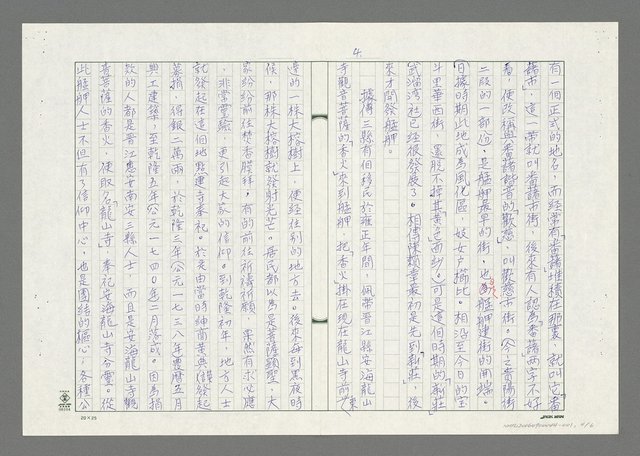 4.
有一個正式的地名，而經常有蕃藷堆積在那裏，就叫它蕃
藷市，這一帶就叫蕃藷市街，後來有人認為蕃藷兩字不好
看，便改稱
二段的一部份，是艋舺最早的街，也為艋舺建街的開端。
日據時期此地成為風化區，妓女戶櫛比。相沿至今日的寶
斗里華西街，還脫不掉其業
武㬰灣社已經很發展了。相傳
來才開發艋舺。
據傳三縣有個移民於雍正年間，佩帶晋江縣安海龍山
寺觀音菩薩的香火來到艋舺，把香火掛在現在龍山寺前
邊的一株大榕樹上，便經往別的地方去。後來每到黑夜時
候，那株大榕樹就發射光芒。居民都以為是菩薩顯聖，大
家紛紛前往焚香膜拜，有的前往祈禱祈願，果然有求必應
，非常靈驗，更引起大家的信仰。到乾隆初年，地方人士
就發起在這個地點建寺奉祀。於是由當時紳商黃典謨發起
募捐，得銀二萬兩，於乾隆三年（公元一七三八年）農曆五月
興工建築，至乾隆五年（公元一七四〇年）二月落成。因為捐
款的人都是晋江惠安南安三縣人士，而且是安海龍山寺觀
音菩薩的香火，便取名「龍山寺」，奉祀安海龍山寺分靈。從
此艋舺人士不但有了信仰中心，也是團結的樞心，各種公
20×25